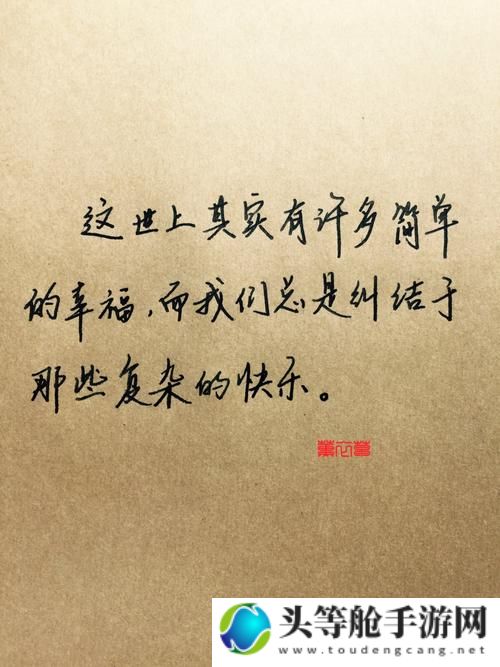 这世上其实有许多简单
的幸福，而我们总是纠结于
那些复杂的快乐。
头等舱手游网
www.toudengcang.net